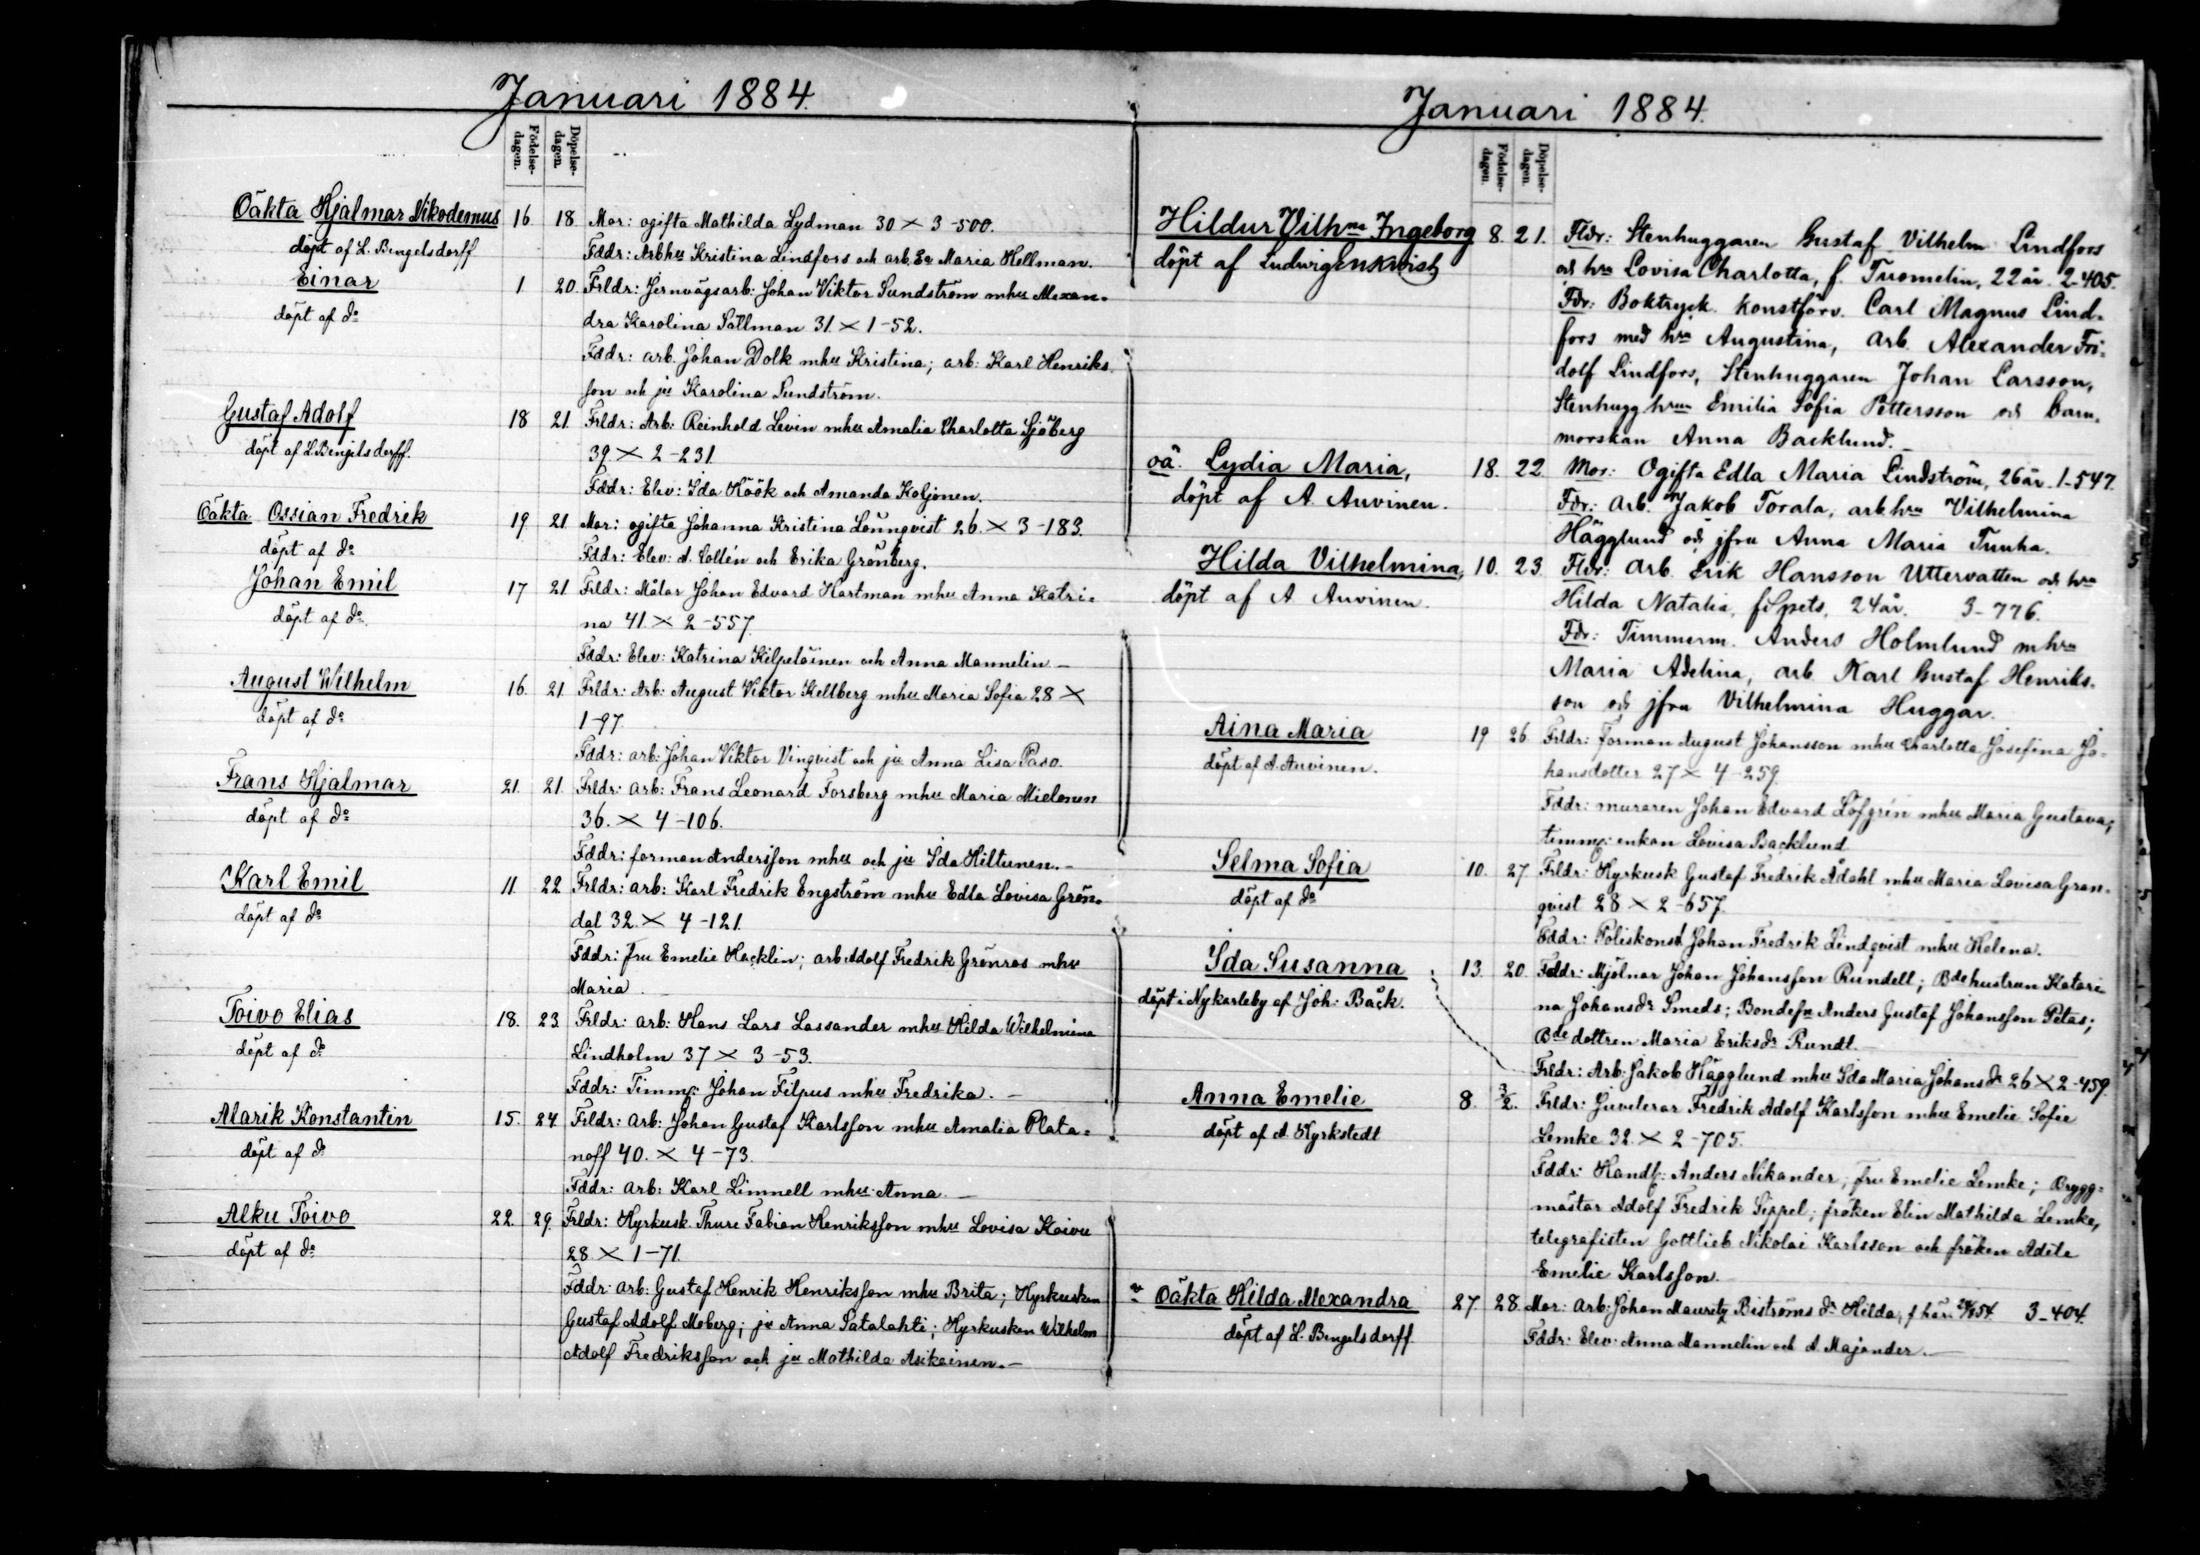 Januari 1884.
Födelse-dagen. Döpelse-dagen.
Oäkta Hjalmar Nikodemus 16 18 Mor: ogifta Mathilda Lydman 30 × 3-500.
döpt af L. Bengelsdorff Fddr: Arbhu Kristina Lindfors och arb. Ea Maria Hellman.
Einar 1 20. Frldr: Jernvägsarb: Johan Viktor Sundström mhu Alexan-
döpt af do dra Karolina Sällman 31. × 1-52.
Fddr: arb. Johan Dolk mhu Kristina; arb: Karl Henriks-
son och ju Karolina Sundström.
Gustaf Adolf 18 21. Frldr: Arb: Reinhold Levin mhu Amalia Charlotta Sjöberg
döpt af L. Bengelsdorff. 39. × 2-231.
Fddr: Elev: Ida Höök och Amanda Koljonen.
Oäkta Ossian Fredrik 19 21 Mor: ogifta Johanna Kristina Lönnqvist 26. × 3-183.
döpt af do Fddr: Elev: A. Collén och Erika Grönberg.
Johan Emil 17 21 Frldr: Målar Johan Edvard Hartman mhu Anna Katri-
döpt af do. na 41. × 2-557.
Fddr: Elev: Katrina Kilpeläinen och Anna Mannelin.—
August Wilhelm 16. 21. Frldr: Arb: August Viktor Kellberg mhu Maria Sofia 28 ×
döpt af do 1-97.
Fddr: arb: Johan Viktor Vinqvist och ju Anna Lisa Paso.
Frans Hjalmar 21. 21. Frldr: arb: Frans Leonard Forsberg mhu Maria Mielonen
döpt af do 36. × 4-106.
Fddr: forman Andersson mhu och ju Ida Hiltunen.—
Karl Emil 11. 22 Frldr: arb: Karl Fredrik Engström mhu Edla Lovisa Grön-
döpt af do dal 32. × 4-121.
Fddr: fru Emelie Hacklin; arb Adolf Fredrik Grönroos mhu
Maria.
Toivo Elias 18. 23. Frldr: arb: Hans Lars Lassander mhu Hilda Wilhelmina
döpt af do Lindholm 37 × 3-53.
Fddr: Timmp: Johan Filpus mhu Fredrika.—
Alarik Konstantin 15. 27. Frldr: Arb: Johan Gustaf Karlsson mhu Amalia Plata-
döpt af do noff 40. × 4-73.
Fddr: Arb: Karl Limnell mhu Anna.—
Alku Toivo 22. 29. Frldr: Hyrkusk Thure Fabian Henriksson mhu Lovisa Koivu
döpt af do 28. × 1-71.
Fddr: arb: Gustaf Henrik Henriksson mhu Brita; Hyrkusken
Gustaf Adolf Moberg; ju Anna Satalahti; Hyrkusken Wilhelm
Adolf Fredriksson och ju Mathilda Asikainen.—
Januari 1884.
Födelse-dagen. Döpelse-dagen.
Hildur Vilhma Ingeborg 8. 21. Fldr: Stenhuggaren Gustaf Vilhelm Lindfors
döpt af Ludvig Enkvist och hru Lovisa Charlotta, f. Tuomelin, 22 år. 2-405.
Fdr: Boktryck. konstförv. Carl Magnus Lind-
fors med hru Augustina, arb. Alexander Fri-
dolf Lindfors, Stenhuggaren Johan Larsson,
Stenhugg hrun Emilia Sofia Pettersson och barn-
morskan Anna Backlund.—
oä. Lydia Maria, 18. 22 Mor: Ogifta Edla Maria Lindström, 26 år. 1-547.
döpt af A. Auvinen. Fdr: Arb. Jakob Torala, arb. hru Vilhelmina
Hägglund och jfru Anna Maria Tuuha.
Hilda Vilhelmina, 10. 23. Fldr: Arb. Erik Hansson Uttervatten och hru
döpt af A Auvinen. Hilda Natalia, f. Spets, 24 år. 3-776.
Fdr: Timmerm. Anders Holmlund m hru
Maria Adelina, arb. Karl Gustaf Henriks-
son och jfru Vilhelmina Huggar.
Aina Maria 19 26 Frldr: forman August Johansson mhu Charlotta Josefina Jo-
döpt af A. Auvinen. hansdotter 27 × 4-259.
Fddr: muraren Johan Edvard Löfgrén mhu Maria Gustava;
timmp: enkan Lovisa Backlund
Selma Sofia 10. 27 Frldr: Hyrkusk Gustaf Fredrik Ådahl mhu Maria Lovisa Gran-
döpt af do qvist 28 × 2-657.
Fddr: Poliskonst. Johan Fredrik Lindqvist mhu Helena.
Ida Susanna 13. 20. Fddr: Mjölnar Johan Johansson Rundell; Bdehustrun Katari-
döpt i Nykarleby af Joh: Bäck. na Johansdr Smeds; Bondesn Anders Gustaf Johansson Petas;
Bde dottren Maria Eriksdr Rundt.—
Frldr: Arb: Jakob Hägglund mhu Ida Maria Johansdr 26 × 2-459.
Anna Emelie 8. 3/2. Frldr: Juvelerar Fredrik Adolf Karlsson mhu Emelie Sofie
döpt af A. Kyrkstedt Lemke 32. × 2-705.
Fddr: Handl: Anders Nikander; fru Emelie Lemke; Brygg-
mästar Adolf Fredrik Sippel; fröken Elin Mathilda Lemke,
telegrafisten Gottlieb Nikolai Karlsson och fröken Adele
Emelie Karlsson.
Oäkta Hilda Alexandra 27. 28. Mor: Arb: Johan Mauritz Biströms dr Hilda, f. här 54. 3-404.
döpt af L. Bengelsdorff Fddr: Elev: Anna Mannelin och A. Majander.—